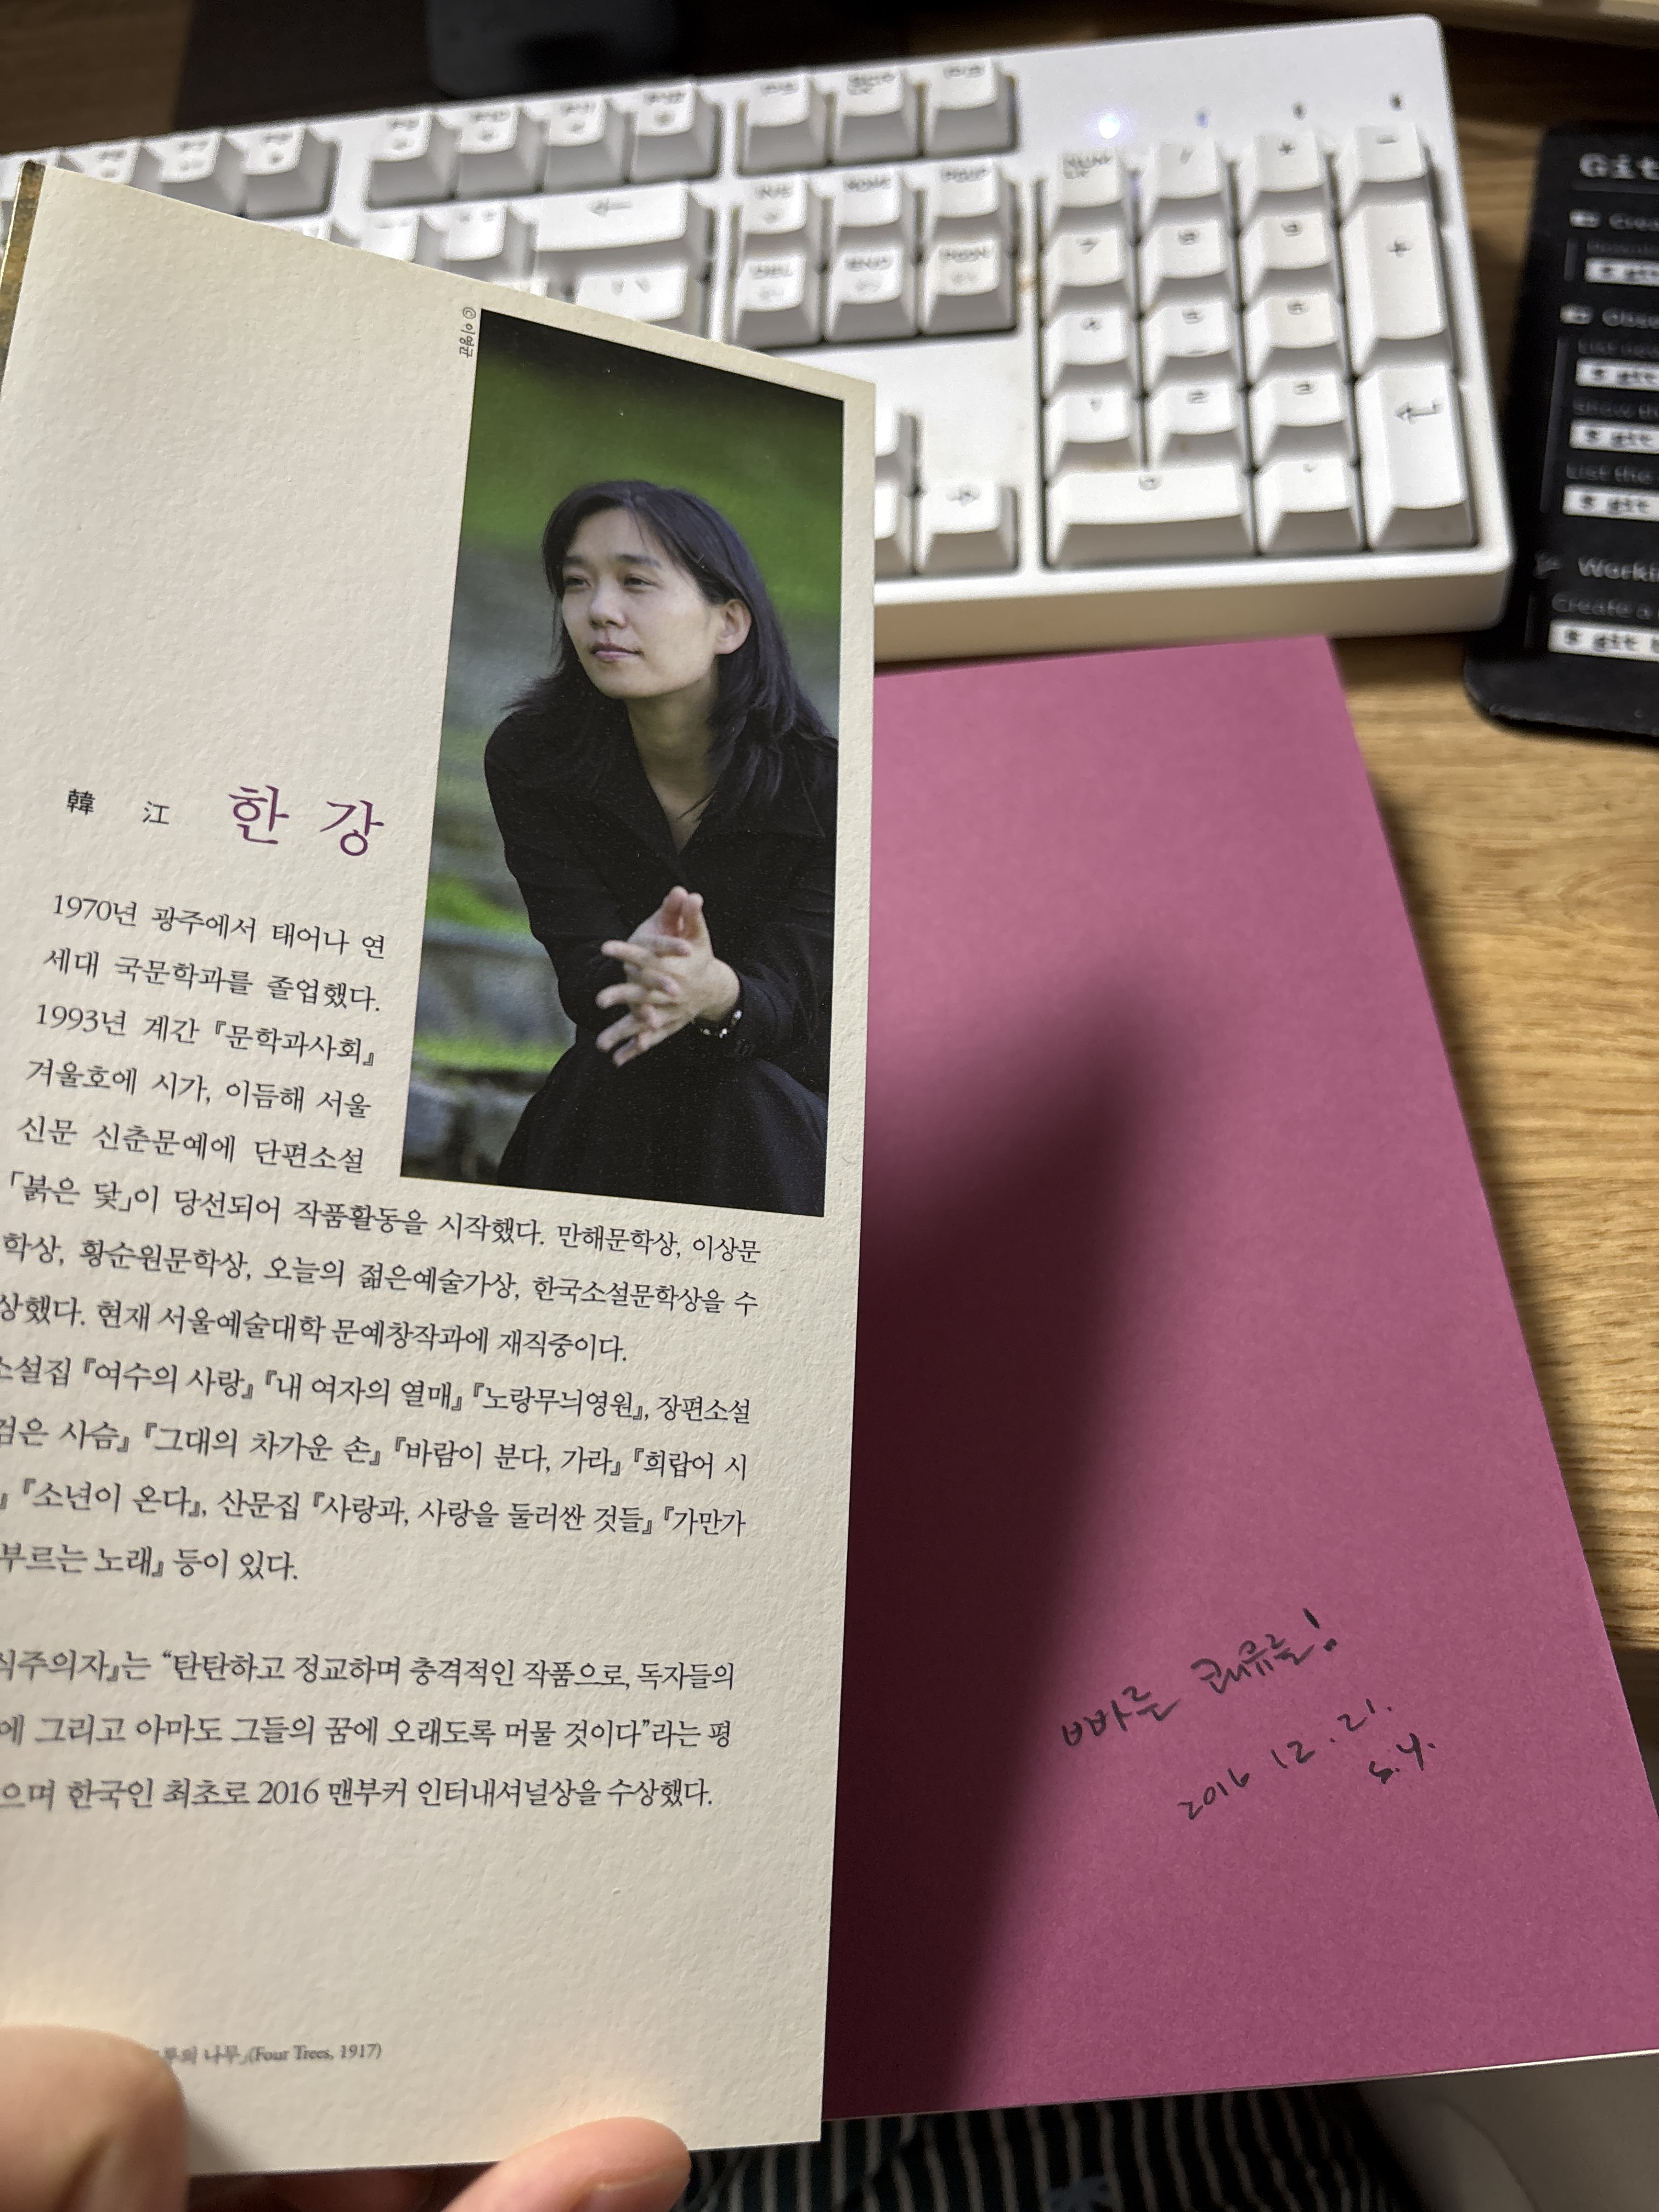 © 이영균
韓 江 한 강
1970년 광주에서 태어나 연
세대 국문학과를 졸업했다.
1993년 계간 『문학과사회』
겨울호에 시가, 이듬해 서울
신문 신춘문예에 단편소설
「붉은 닻」이 당선되어 작품활동을 시작했다. 만해문학상, 이상문
학상, 황순원문학상, 오늘의 젊은예술가상, 한국소설문학상을 수
상했다. 현재 서울예술대학 문예창작과에 재직중이다.
소설집 『여수의 사랑』 『내 여자의 열매』 『노랑무늬영원』, 장편소설
검은 사슴』 『그대의 차가운 손』 『바람이 분다, 가라』 『희랍어 시
』 『소년이 온다』, 산문집 『사랑과, 사랑을 둘러싼 것들』 『가만가
부르는 노래』 등이 있다.
식주의자』는 “탄탄하고 정교하며 충격적인 작품으로, 독자들의
에 그리고 아마도 그들의 꿈에 오래도록 머물 것이다”라는 평
으며 한국인 최초로 2016 맨부커 인터내셔널상을 수상했다.
나무」(Four Trees, 1917)
빠른 쾌유를!
2016 12. 21.
S.Y.
7 8 9 +
4 5 6
1 2 3
0
DEL END PGDN
Git
$ git
$ git
$ git
List the
$ git
Create a
$ git